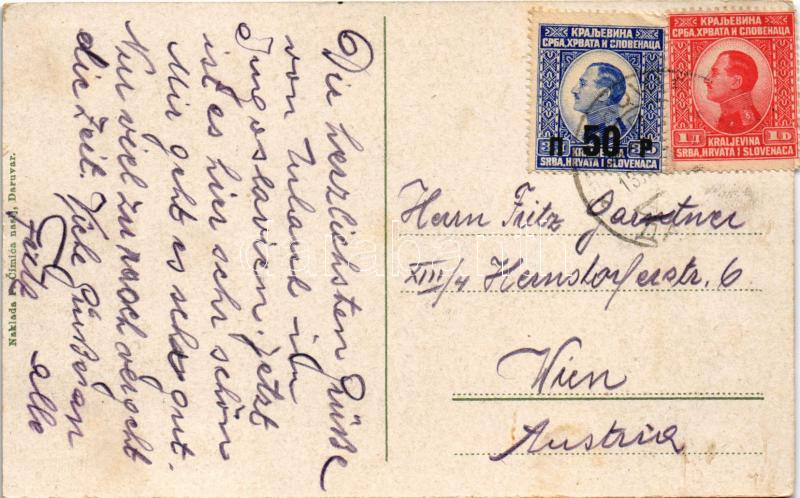 Die herzlichsten Grüße
von Urlaub in
Jugoslavien. Jetzt
ist es hier sehr schön
Mir geht es sehr gut.
Nur viel zu rasch vergeht
die Zeit. Viele Grüße an
alle
Naklada Čimića nasj., Daruvar.
КРАЉЕВИНА
СРБА, ХРВАТА И СЛОВЕНАЦА
П 50 P
SRBA, HRVATA I SLOVENACA
КРАЉЕВИНА
СРБА, ХРВАТА И СЛОВЕНАЦА
1 Д 1 D
KRALJEVINA
SRBA, HRVATA I SLOVENACA
Herrn Fritz Gärtner
XIII/4
6
Wien
Austria
darabanth